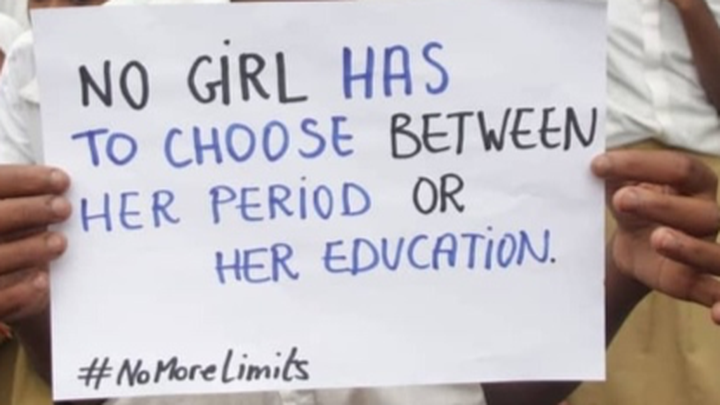 NO GiRL HAS
TO CHOOSE BETWEEN
HER PERiOD OR
HER EDUCATiON.
#NoMoreLimits